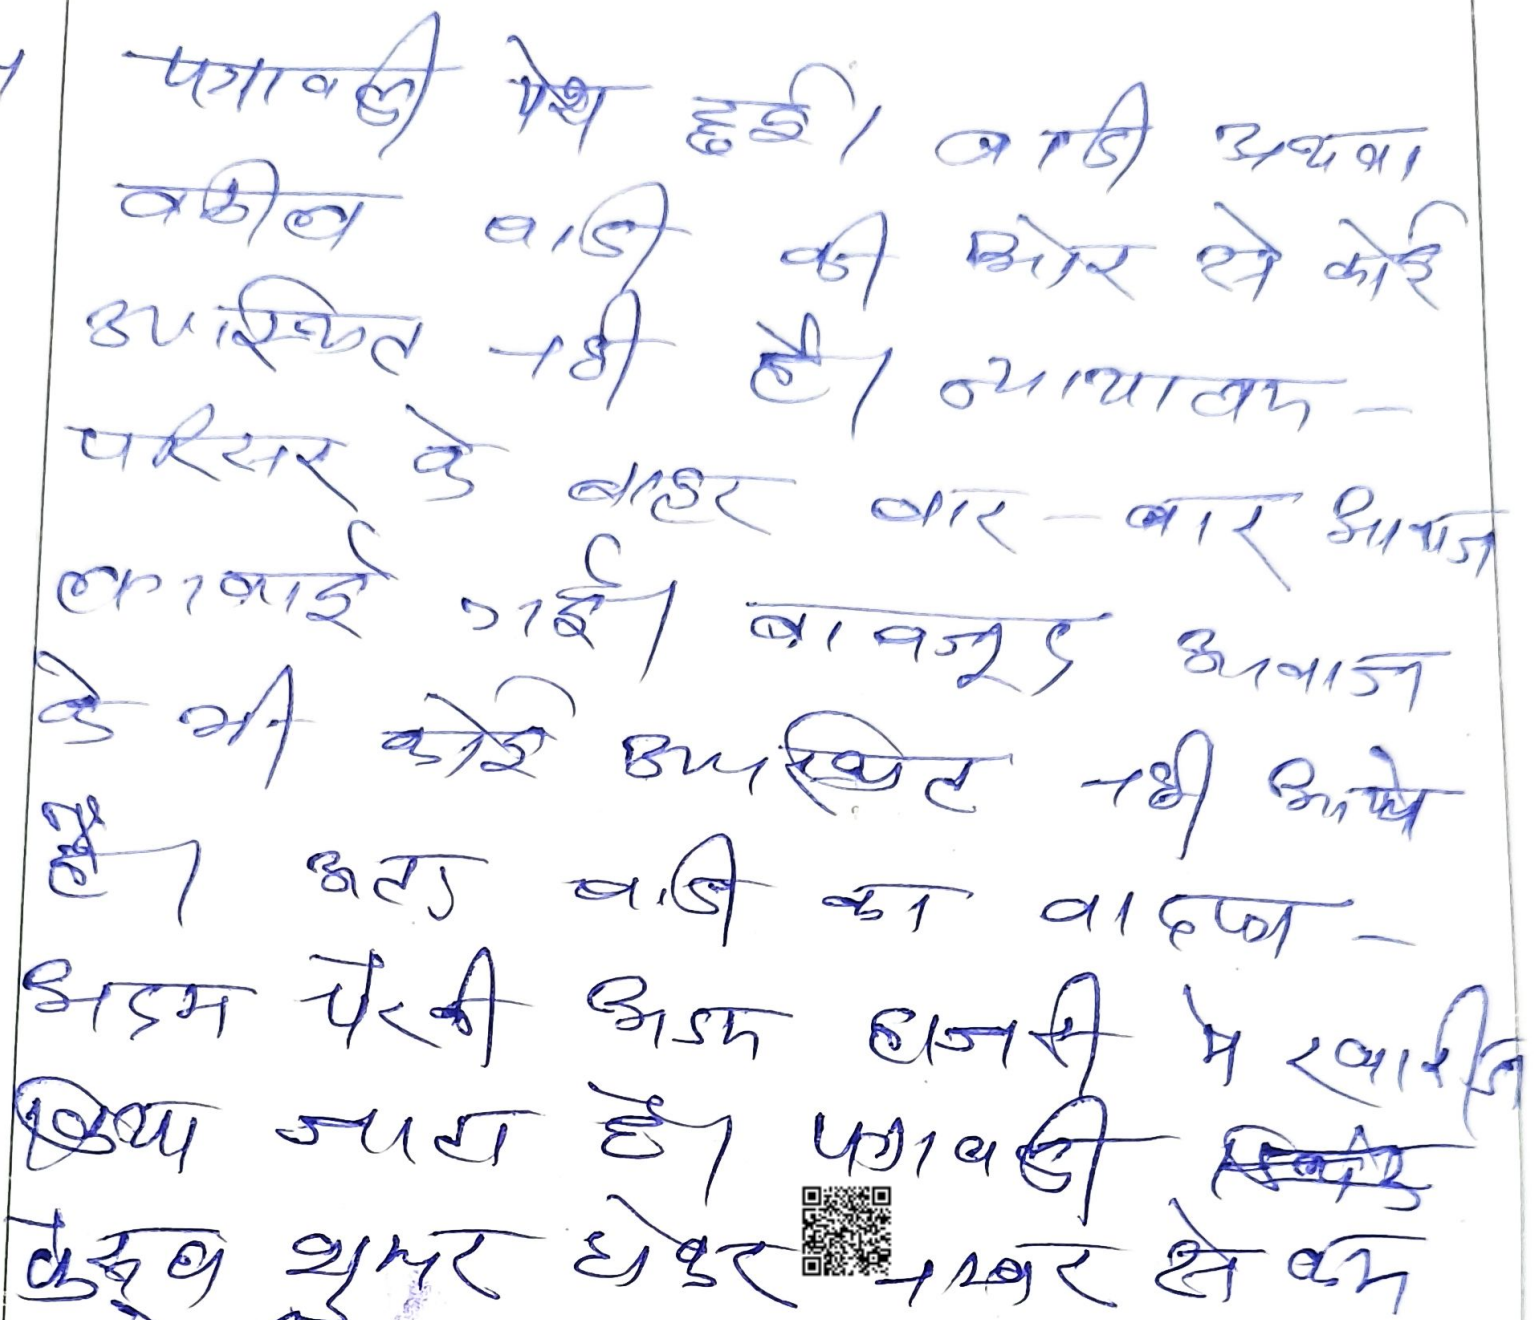 पत्रावली पेश हुई। वादी अथवा
वकील वादी की ओर से कोई
उपस्थित नही है। न्यायालय -
परिसर के बाहर बार - बार आवाज
लगवाई गई। बावजूद आवाज
के भी कोई उपस्थित नही आये
है। अतः वादी का वादपत्र -
अदम पैरवी अदम हाजरी मे खारीज
किया जाता है। पत्रावली
फैसल शुमार होकर नम्बर से कम